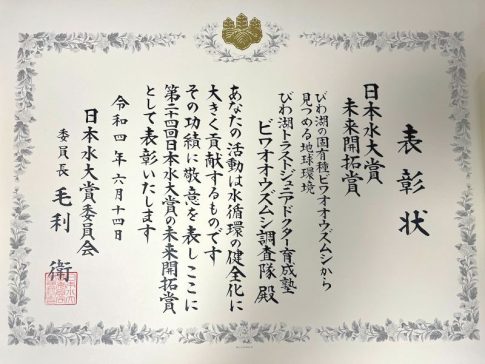 表彰状
日本水大賞
未来開拓賞
びわ湖の固有種ビワオオウズムシから
見つめる地球環境
びわ湖トラストジュニアドクター育成塾
ビワオオウズムシ調査隊 殿
あなたの活動は水循環の健全化に
大きく貢献するものです
その功績に敬意を表しここに
第二十四回日本水大賞の未来開拓賞
として表彰いたします
令和四年六月十四日
日本水大賞委員会
委員長 毛利 衛